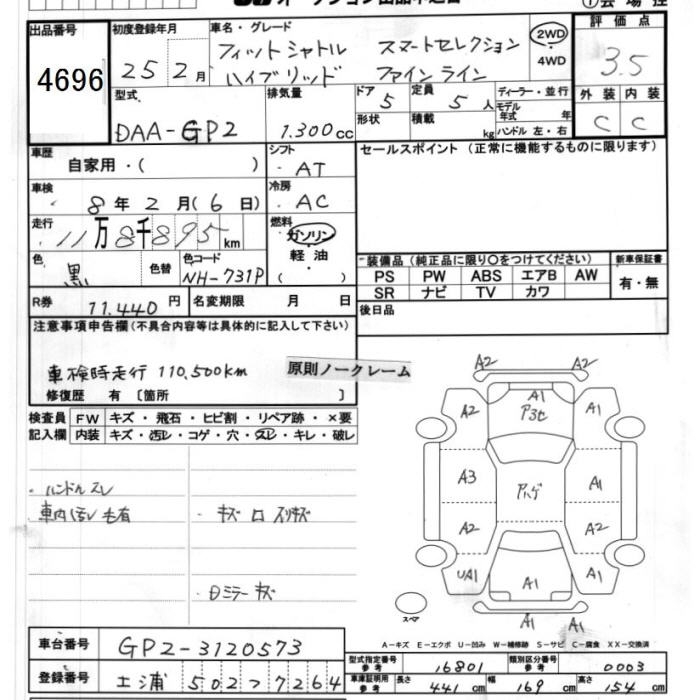 出品番号
4696
初度登録年月
25 2月
車名・グレード
フィットシャトル スマートセレクション
ハイブリッド ファインライン
2WD
・
4WD
評価点
3.5
型式
DAA-GP2
排気量
1.300cc
ドア
5
定員
5人
形状
積載
kg
ディーラー・並行
モデル年式 年
ハンドル 左・右
外装 内装
C C
車歴
自家用・( )
シフト
AT
セールスポイント (正常に機能するものに限ります)
車検
8年2月(6日)
冷房
AC
走行
11万8千895km
燃料
ガソリン
軽油
( )
色
黒
色替
色コード
NH-731P
装備品(純正品に限り○をつけてください)
PS PW ABS エアB AW
SR ナビ TV カワ
新車保証書
有・無
R券
11.440円
名変期限 月 日
後日品
注意事項申告欄(不具合内容等は具体的に記入して下さい)
車検時走行 110,500km
原則ノークレーム
修復歴 有 〔箇所 〕
検査員記入欄
FW キズ・飛石・ヒビ割・リペア跡・×要
内装 キズ・汚レ・コゲ・穴・スレ・キレ・破レ
・ハンドルスレ
・車内汚レ 毛有
・キズ ロ スリキズ
・Dミラー キズ
A2 A2
A2 A1 A1
アヨセ
A3 アハゲ A1
A2 A2
UA1 A1 A1
A1 A1
スペア
A-キズ E-エクボ U-凹み W-補修跡 S-サビ C-腐食 XX-交換済
車台番号
GP2-3120573
登録番号
土浦 502 ワ 7264
型式指定番号
参考
16801
類別区分番号
参考
0003
車庫証明用
参考
長さ
441cm
幅
169cm
高さ
154cm